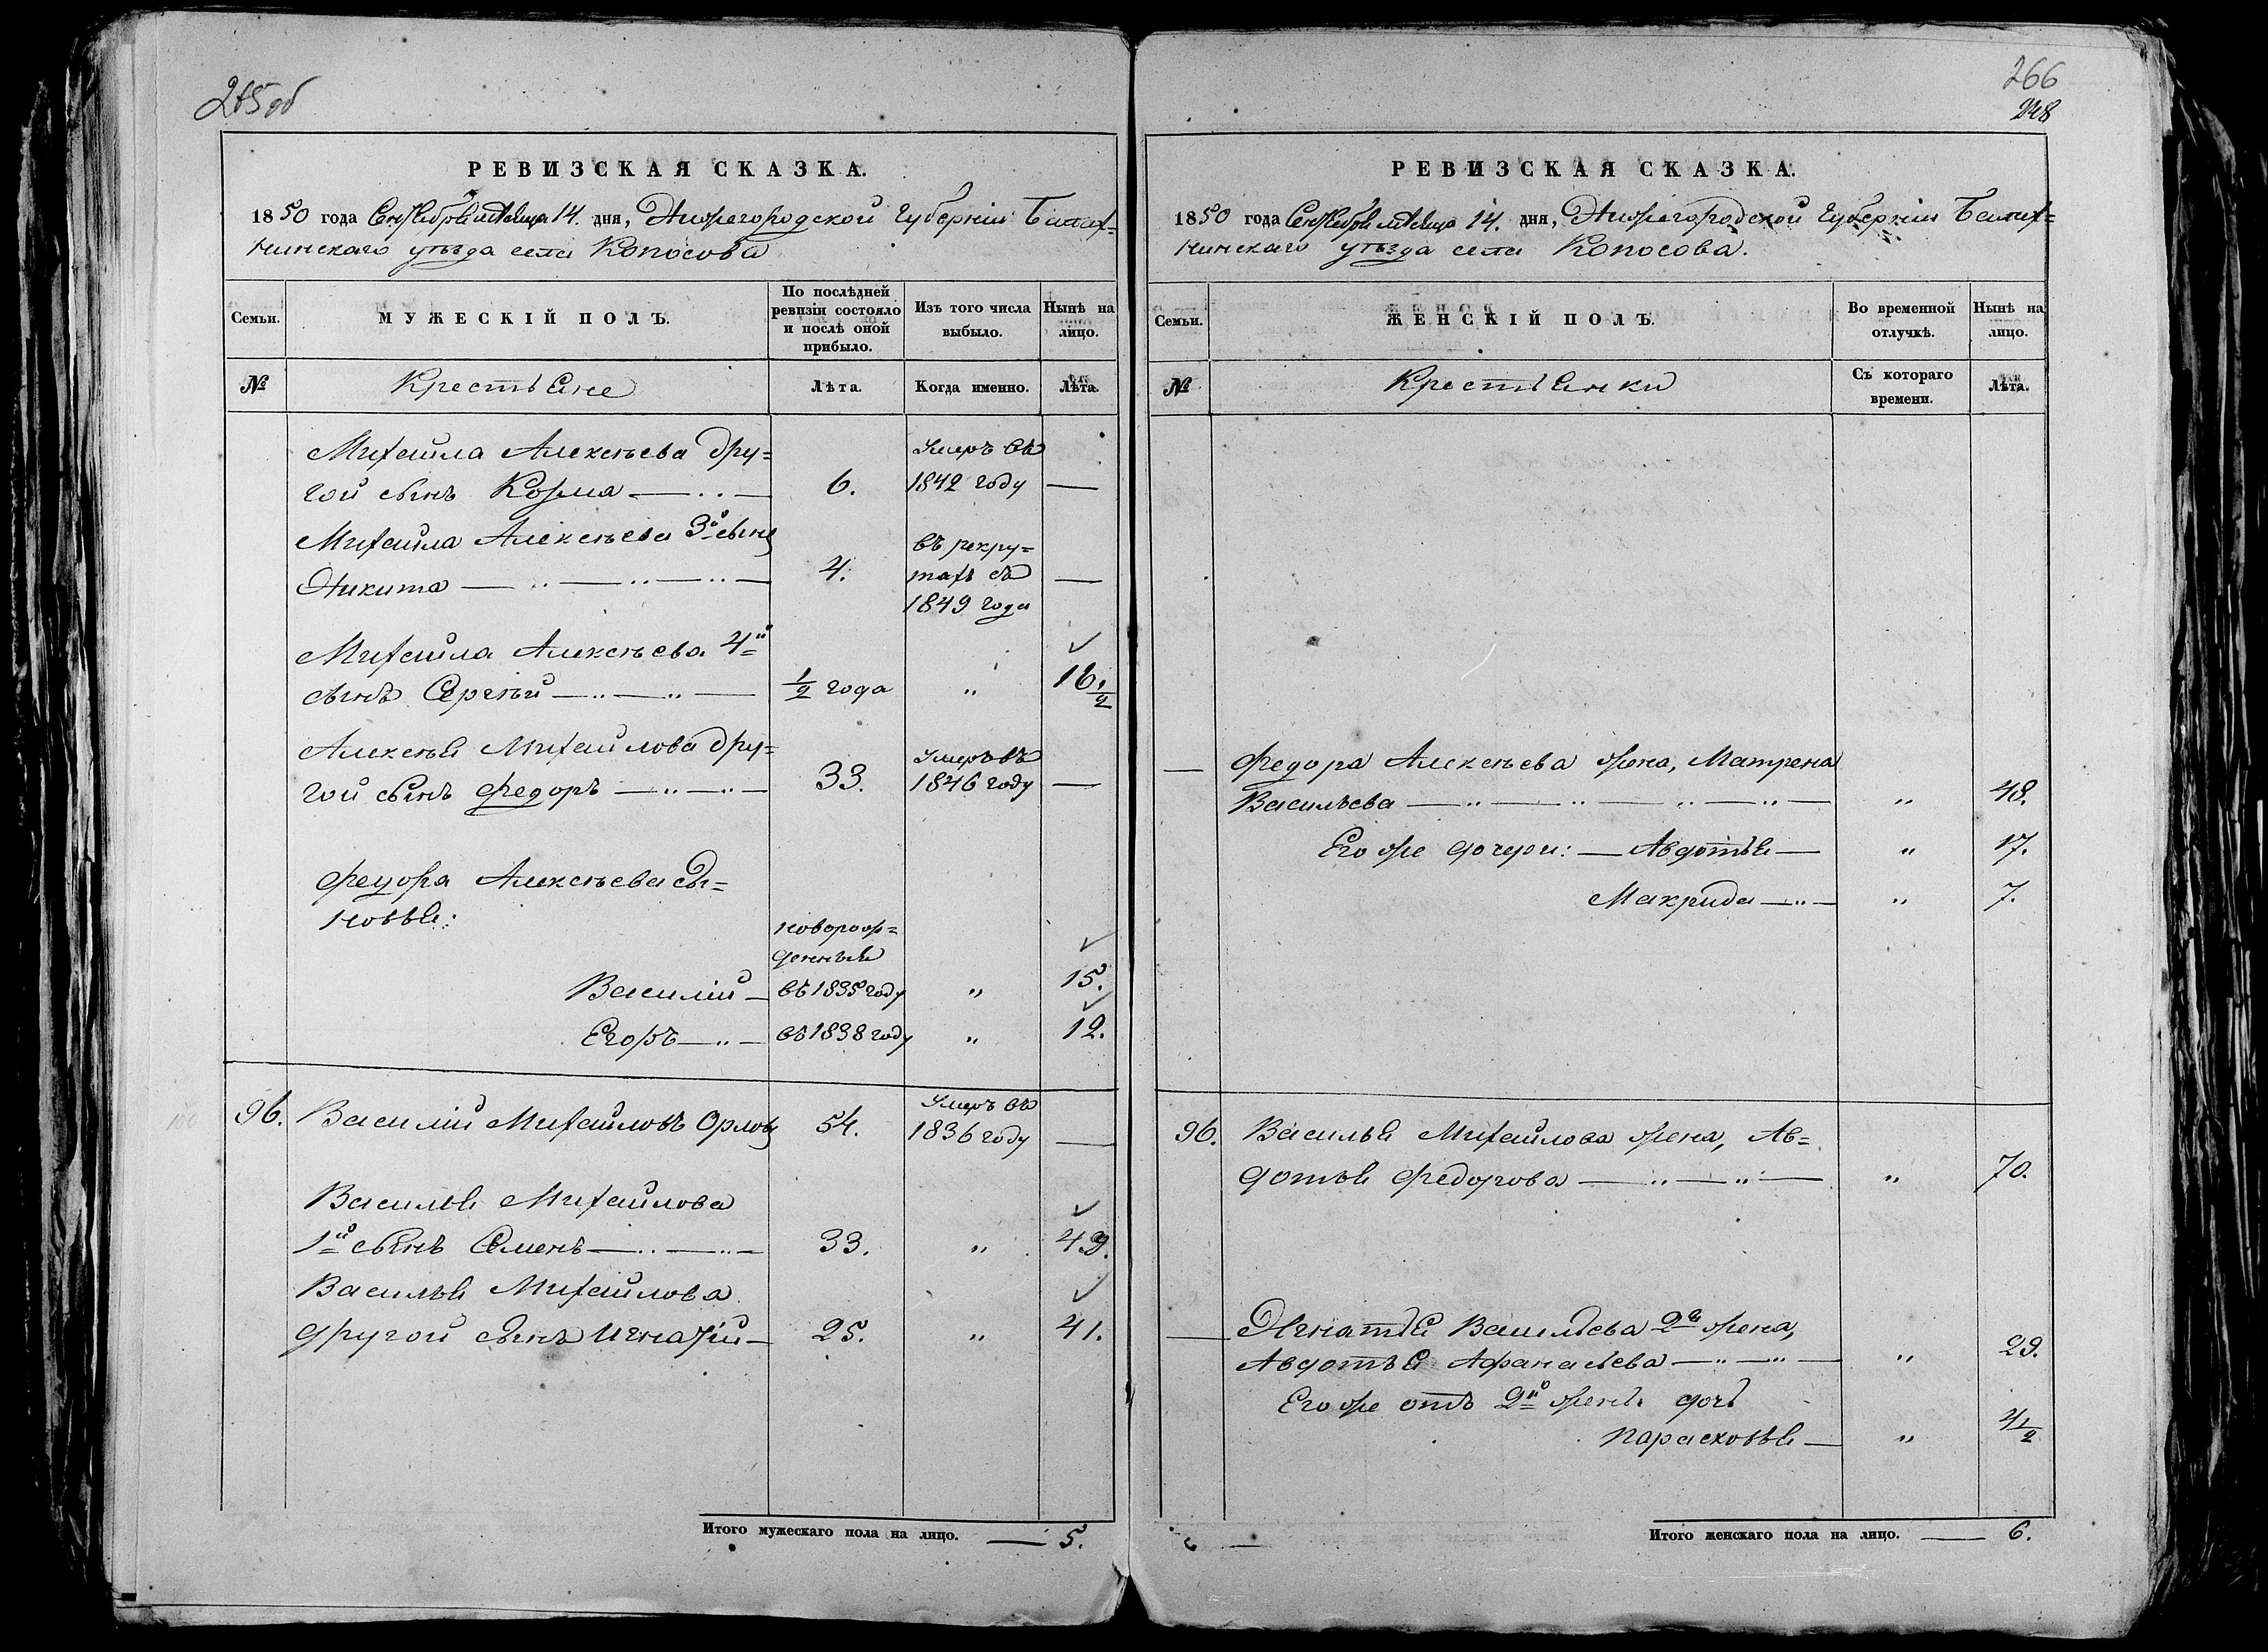 265об
РЕВИЗСКАЯ СКАЗКА.
1850 года Сентября мѣсяца 14. дня, Нижегородской Губерніи Балах=
нинскаго уѣзда села Копосова
Семьи.
МУЖЕСКІЙ ПОЛЪ.
По послѣдней ревизіи состояло и послѣ оной прибыло.
Изъ того числа выбыло.
Нынѣ на лицо.
№
Крестьяне
Лѣта.
Когда именно.
Лѣта.
Михайла Алексѣева дру=
гой сынъ Козма 6. Умеръ въ 1842 году —
Михайла Алексѣева 3й сынъ
Никита 4. въ рекру=
тахъ съ
1849 года —
Михайла Алексѣева 4й
сынъ Сергѣй 1/2 года " 16 1/2
Алексѣя Михайлова дру=
гой сынъ Федоръ 33. Умеръ въ 1846 году —
Федора Алексѣева сы=
новья:
новорож=
денные
Василій въ 1835 году " 15.
Егоръ въ 1838 году " 12.
96. Василій Михайловъ Орловъ 54. Умеръ въ 1836 году —
Василья Михайлова
1й сынъ Семенъ 33. " 49.
Василья Михайлова
другой сынъ Игнатій 25. " 41.
Итого мужескаго пола на лицо. — 5.
266
РЕВИЗСКАЯ СКАЗКА.
1850 года Сентября мѣсяца 14. дня, Нижегородской Губерніи Балах=
нинскаго уѣзда села Копосова.
Семьи.
ЖЕНСКІЙ ПОЛЪ.
Во временной отлучкѣ.
Нынѣ на лицо.
№
Крестьянки
Съ котораго времени.
Лѣта.
— Федора Алексѣева жена, Матрена
Васильева " 48.
Его же дочери: — Авдотья — " 17.
Макрида " 7.
96. Василья Михайлова жена, Ав=
дотья Федорова " 70.
— Игнатья Васильева 2я жена,
Авдотья Афанасьева " 29.
Его же отъ 2й жены дочь
Парасковья — " 4 1/2
Итого женскаго пола на лицо. — 6.